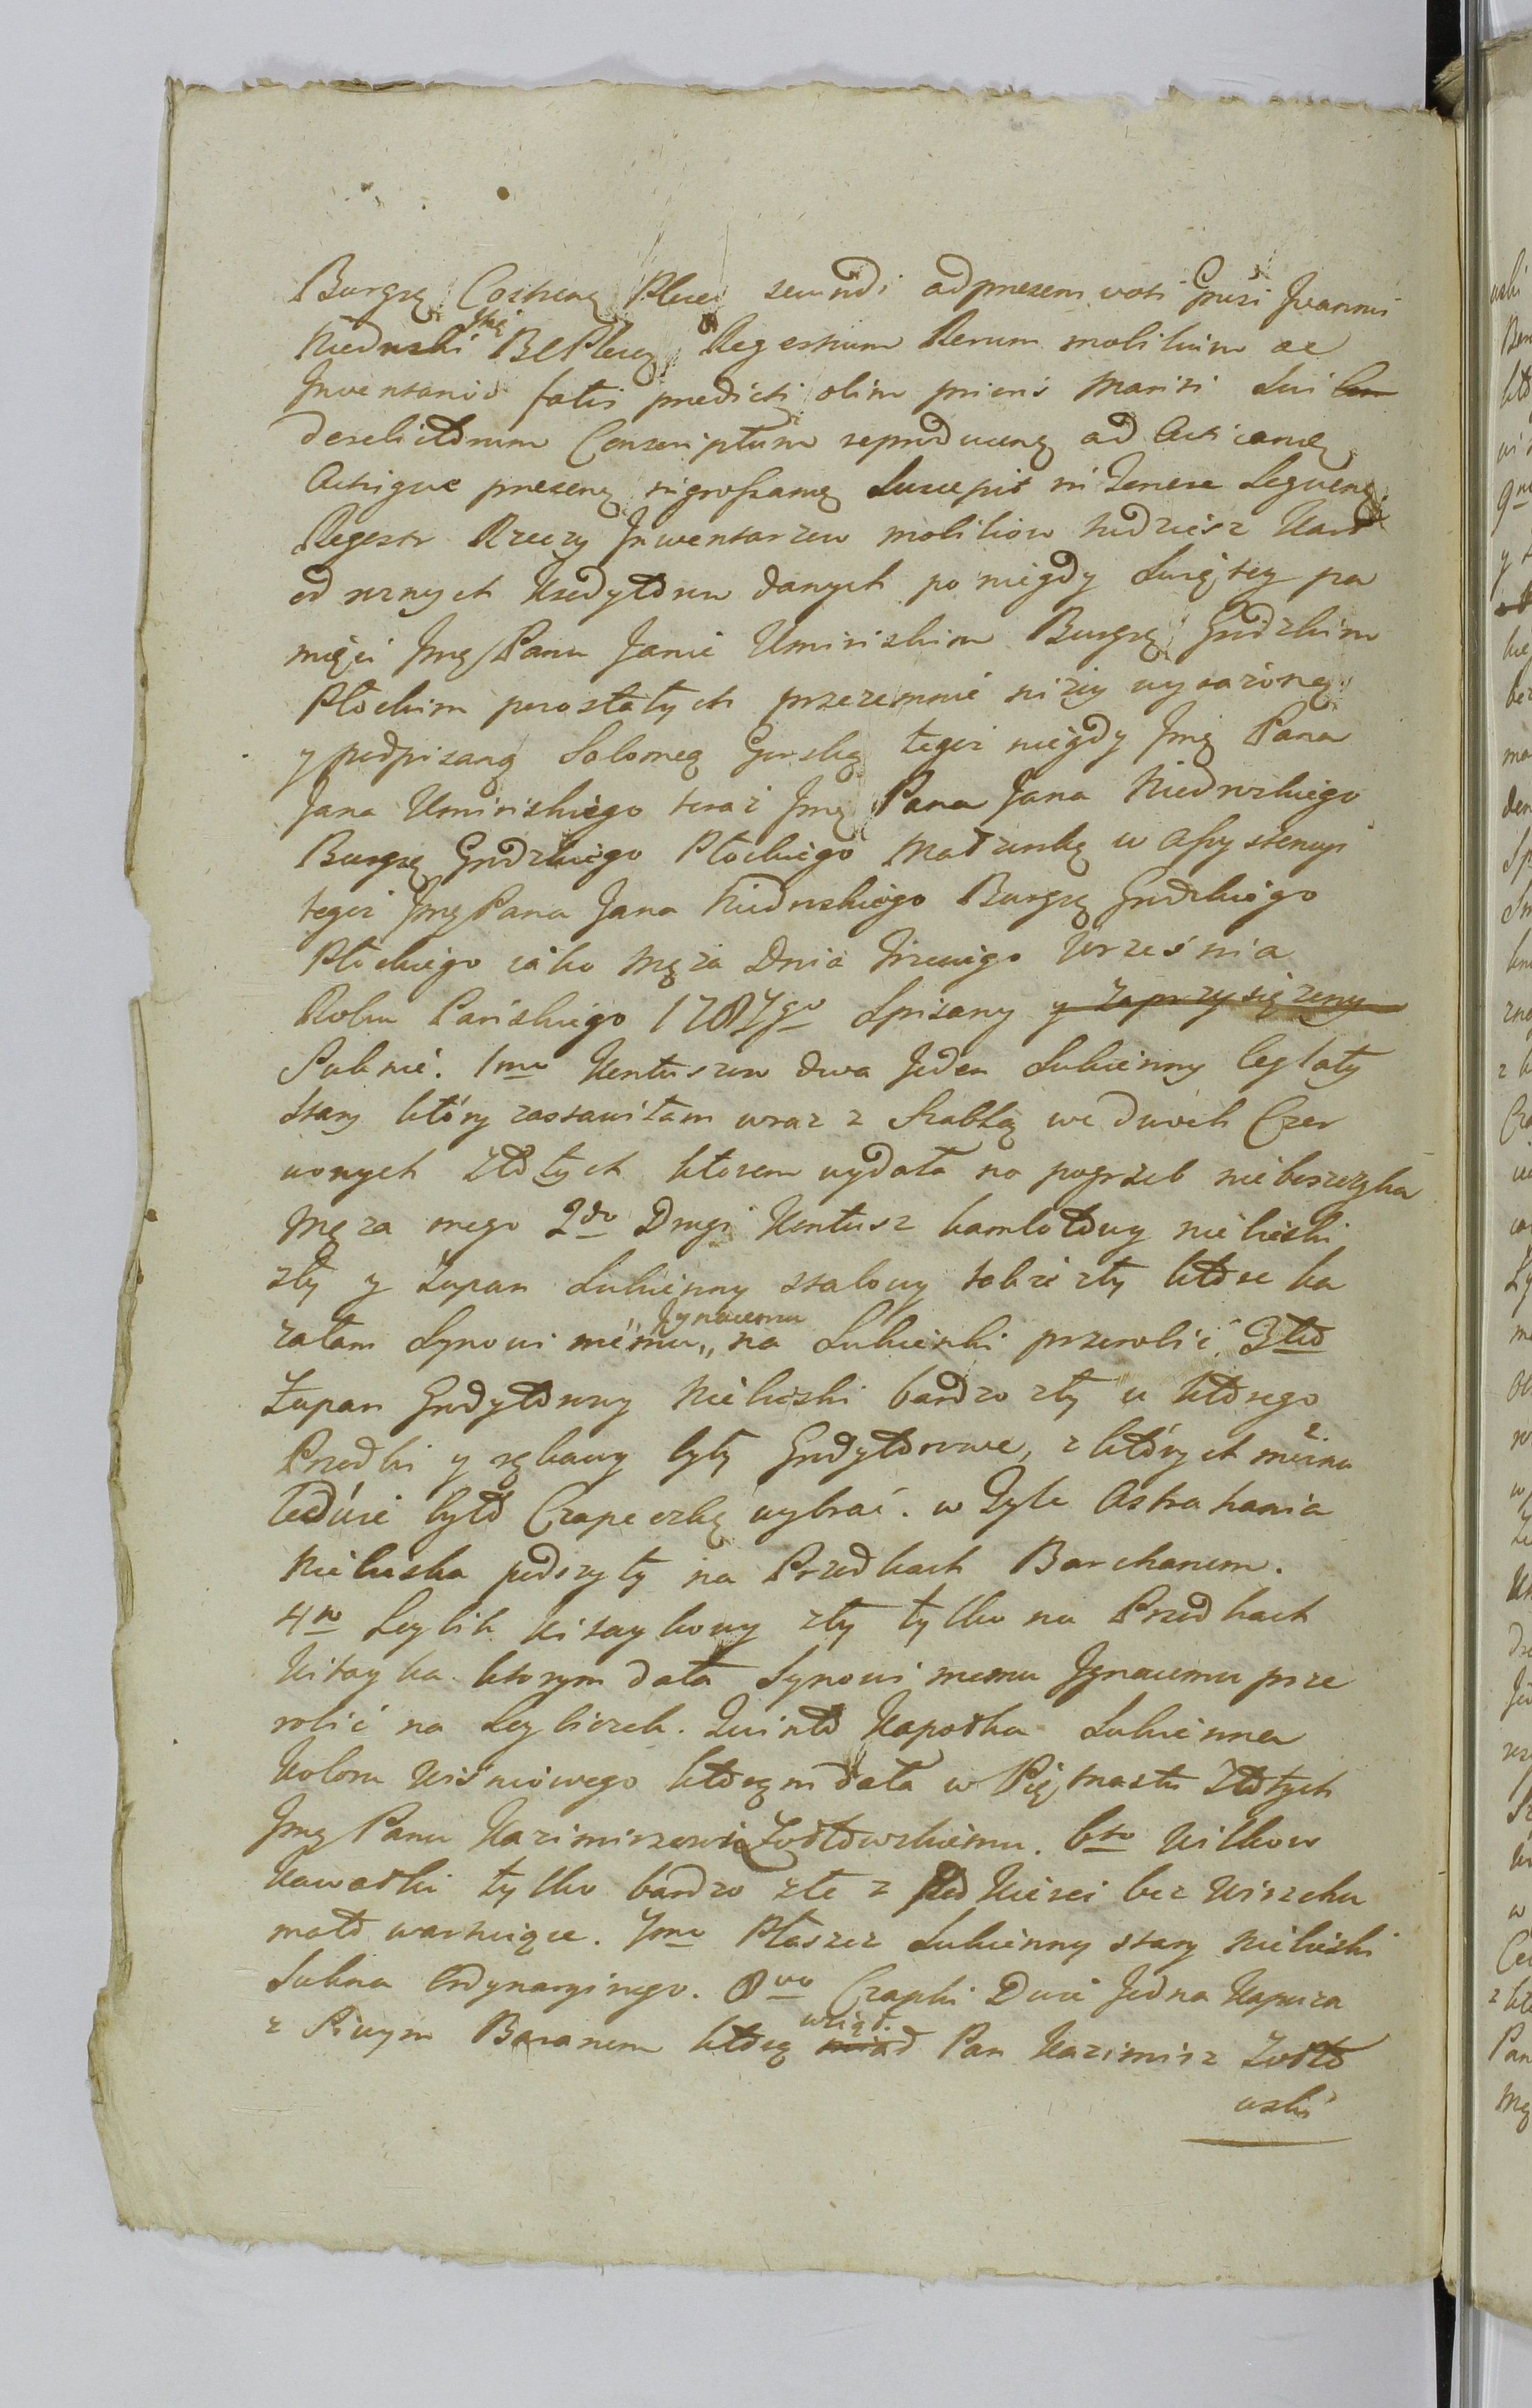 Burgrę Castreną Plocen secundi ad presens voti Gnrsi Joannis
Niedroski BCPlocen Regestrum Rerum mobilium ac
Inventario fatis predicti olim prioris Mariti Sui
derelictorum Conscriptum reproducens ad Acticandę
Actisque presenę ingrossandę Suscepit in Tenore Sequenę
Regestr Rzeczy Inwentarzow mobiliow tudziesz Kart
od roznych Kredytorow danych po niegdy Swiętey pa
mięci Jmę Panu Janie Uminskim Burgrę Grodzkim
Płockim pozostałych przezemnie niżey wyrażoną
y podpisaną Salomeą Gorską tegoż niegdy Jmę Pana
Jana Uminskiego teraż Jmę Pana Jana Niedroskiego
Burgrę Grodzkiego Płockiego Małzonkę w assystencyi
tegoż Jmę Pana Jana Niedroskiego Burgrę Grodzkiego
Płockiego iako Męża Dnia Trzeciego Września
Roku Pańskiego 1787go Spisany y Zaprzysiężony
Suknie. 1mo Kontuszow dwa Jeden Sukienny Ceglaty
stary który zastawiłam wraz z Szablą we dwoch Czer
wonych złotych ktorem wydała na pogrzeb nieboszczyka
Męża mego 2do Drugi Kontusz kamlotowy niebieski
zły y Żupan Sukienny stalowy także zły które ka
załam Synowi memu Jgnacemu na Sukienki przerobić 3tio
Żupan Grodytorowy Niebieski bardzo zły u którego
Przodki y rękawy były Grodytorowe, z których można
ledwie było Czapeczkę wybrać. w Tyle Astrahania
Niebieska podszyty na Przodkach Barchanem.
4to Leybik kitaykowy zły tylko na Przodkach
Kitayka ktorym dała Synowi memu Jgnacemu prze
robić na Leybiczek. Quinto Kapotka Sukienna
Koloru Wiśniowego którąm dała w Piętnastu Złotych
Jmę Panu Kazimirzowi Zołtowskiemu. 6to Kilkow
Kawałki tylko bardzo złe z Pod Kierei bez Wirzchu
mało wartuiące. 7mo Płaszcz Sukienny stary Niebieski
Sukna Ordynaryinego. 8vo Czapki Dwie Jedna Kapuza
z Siwym Baranem którą wziął Pan Kazimirz Zołto
wski